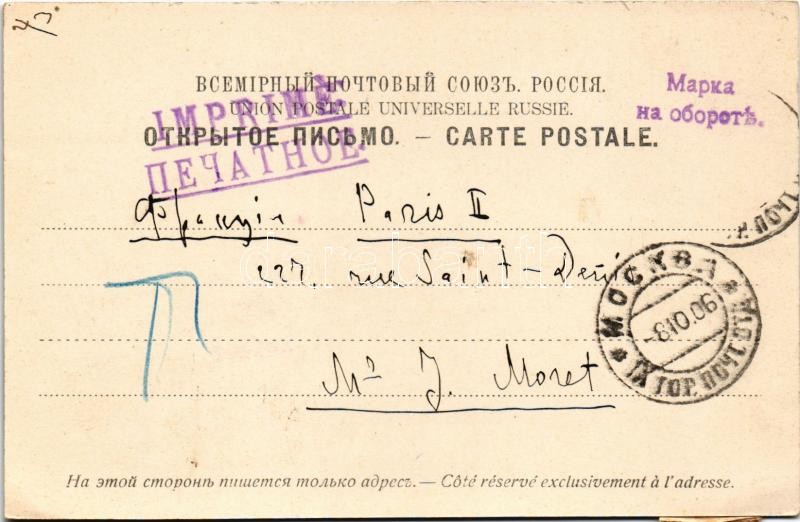 ВСЕМІРНЫЙ ПОЧТОВЫЙ СОЮЗЪ. РОССІЯ.
UNION POSTALE UNIVERSELLE RUSSIE.
ОТКРЫТОЕ ПИСЬМО. – CARTE POSTALE.
IMPRIMÉ.
ПЕЧАТНОЕ.
Марка
на оборотѣ.
Франція Paris II
227. rue Saint-Denis
Mr J. Moret
МОСКВА
-8.10.06
IX ГОР. ПОЧТ. ОТД.
На этой сторонѣ пишется только адресъ. — Côté réservé exclusivement à l'adresse.